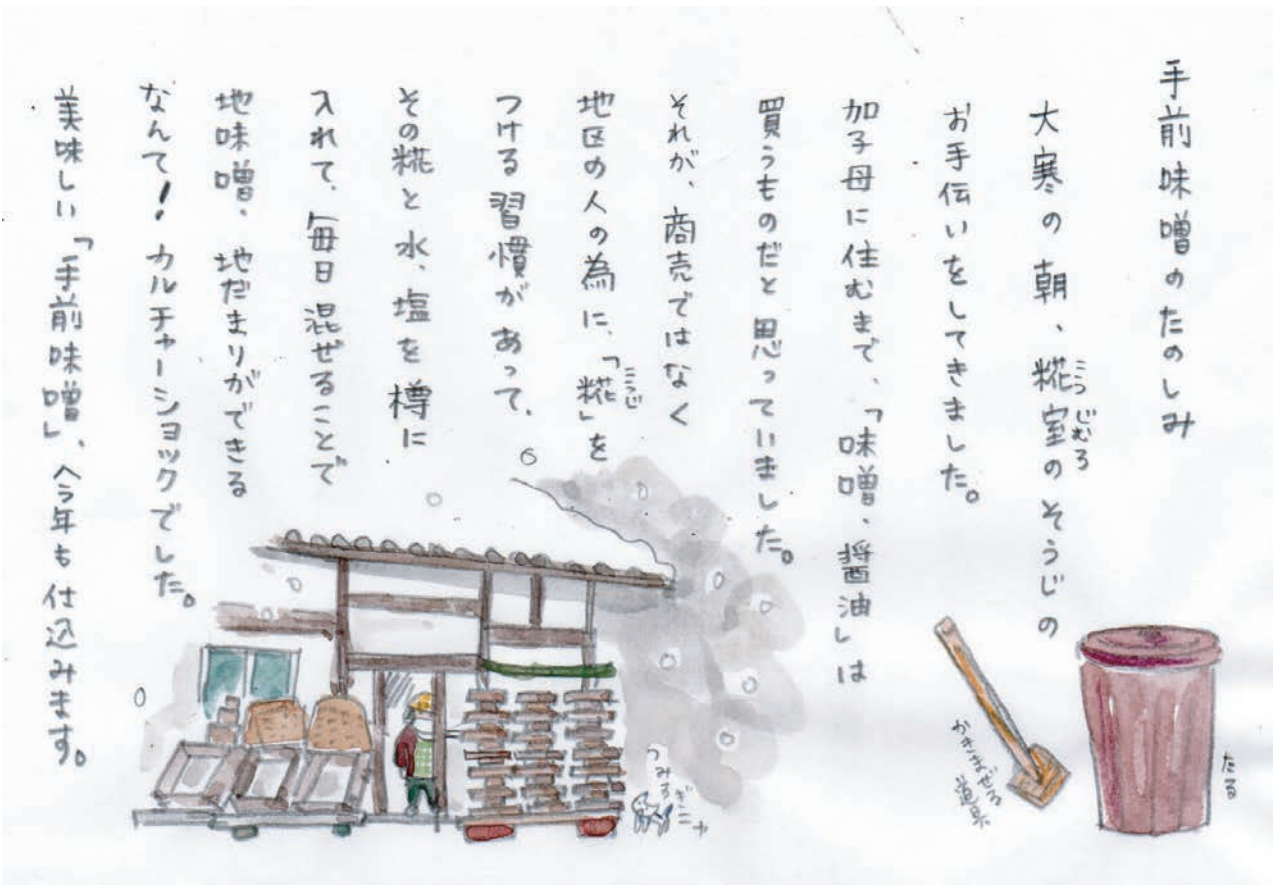 手前味噌のたのしみ
大寒の朝、糀室のそうじの
こうじむろ
お手伝いをしてきました。
加子母に住むまで、「味噌・醤油」は
買うものだと思っていました。
それが、商売ではなく
地区の人の為に、「糀」を
こうじ
つける習慣があって、
その糀と水、塩を樽に
入れて、毎日混ぜることで
地味噌、地だまりができる
なんて！カルチャーショックでした。
美味しい「手前味噌」、今年も仕込みます。
たる
かきまぜる
道具